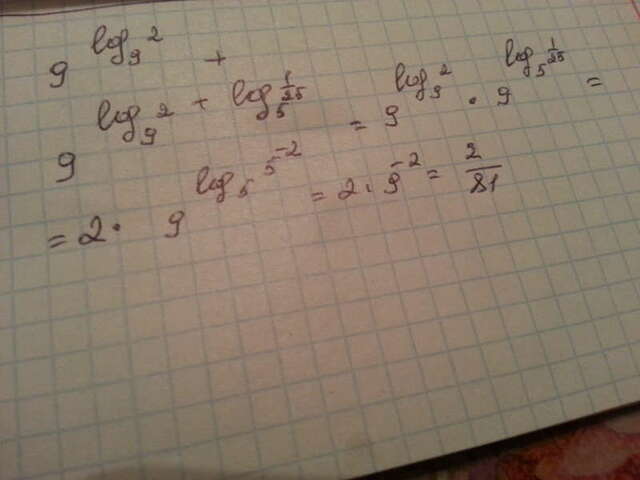 9^{log_9 2} +
9^{log_9 2 + log_5 \frac{1}{25}} = 9^{log_9 2} · 9^{log_5 \frac{1}{25}} =
= 2 · 9^{log_5 5^{-2}} = 2 · 9^{-2} = \frac{2}{81}